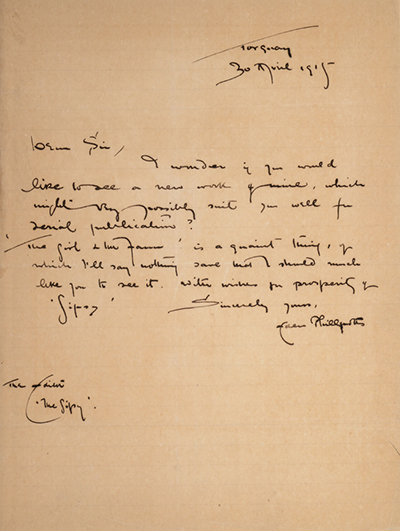 Torquay
30 April 1915
Dear Sir,
I wonder if you would
like to see a new work of mine, which
might very possibly suit you well for
serial publication?
'The Girl & the Faun' is a quaint thing, of
which I'll say nothing save that I should much
like you to see it. With wishes for prosperity of
'Gipsy'
Sincerely yours,
Eden Phillpotts
The Editor
'The Gipsy'.